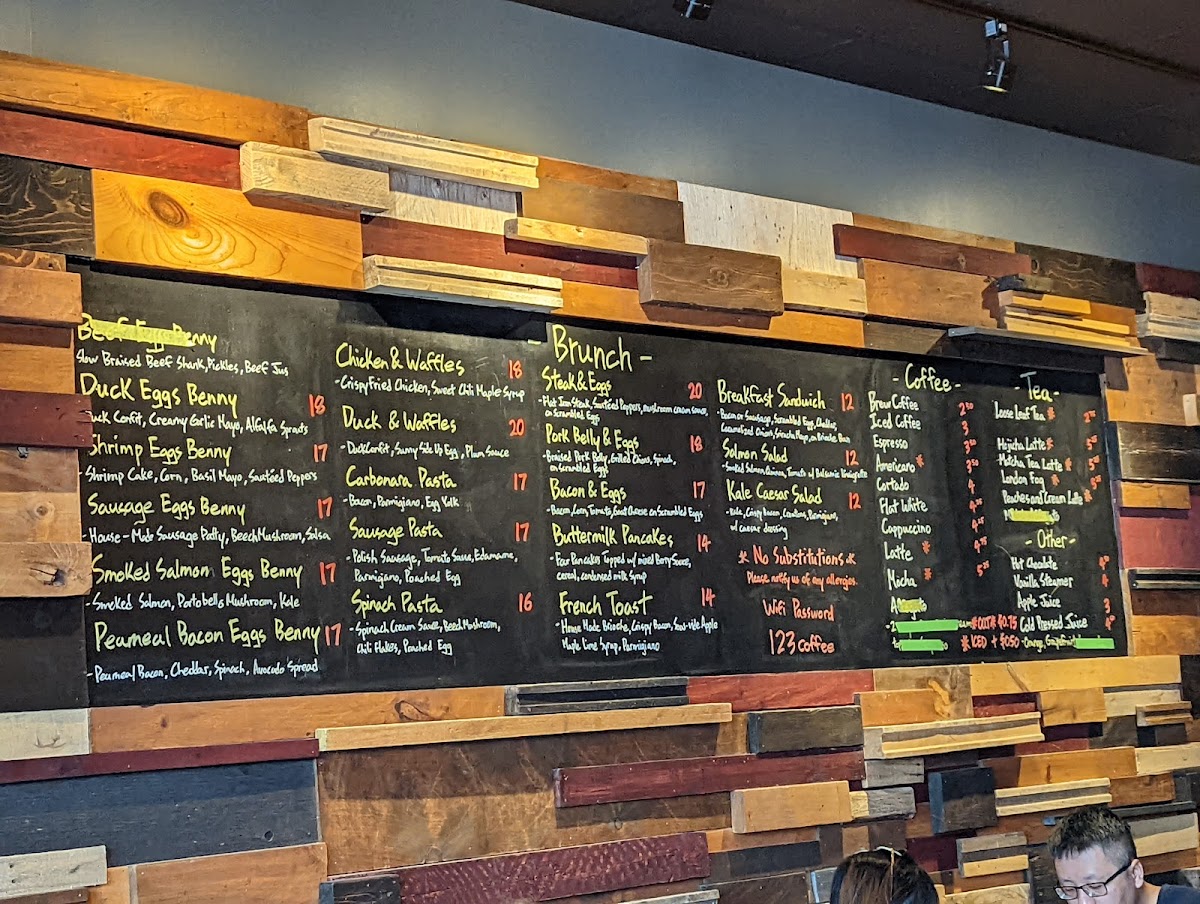 Beef Eggs Benny
Slow Braised Beef Shank, Pickles, Beef Jus
Duck Eggs Benny 18
Duck Confit, Creamy Garlic Mayo, Alfalfa Sprouts
Shrimp Eggs Benny 17
- Shrimp Cake, Corn, Basil Mayo, Sautéed Peppers
Sausage Eggs Benny 17
House-Made Sausage Patty, Beech Mushroom, Salsa
Smoked Salmon Eggs Benny 17
- Smoked Salmon, Portobello Mushroom, Kale
Peameal Bacon Eggs Benny 17
- Peameal Bacon, Cheddar, Spinach, Avocado Spread
Chicken & Waffles 18
- Crispy Fried Chicken, Sweet Chili Maple Syrup
Duck & Waffles 20
- Duck Confit, Sunny Side Up Egg, Plum Sauce
Carbonara Pasta 17
- Bacon, Parmigiano, Egg Yolk
Sausage Pasta 17
- Polish Sausage, Tomato Sauce, Edamame,
Parmigiano, Poached Egg
Spinach Pasta 16
- Spinach Cream Sauce, Beech Mushroom,
Chili Flakes, Poached Egg
- Brunch -
Steak & Eggs 20
- Flat Iron Steak, Sautéed Peppers, mushroom cream sauce,
on Scrambled Eggs
Pork Belly & Eggs 18
- Braised Pork Belly, Grilled Onions, Spinach,
on Scrambled Eggs
Bacon & Eggs 17
- Bacon, Corn, Tomato, Goat Cheese on Scrambled Eggs
Buttermilk Pancakes 14
- Four Pancakes Topped w/ mixed Berry Sauce,
cereal, condensed milk syrup
French Toast 14
- Home Made Brioche, Crispy Bacon, Sous-vide Apple
Maple Syrup, Parmigiano
Breakfast Sandwich 12
- Bacon or Sausage, Scrambled Egg, Cheddar,
Caramelized Onions, Sriracha Mayo, on Brioche Bun
Salmon Salad 12
- Smoked Salmon, Quinoa, Tomato w/ Balsamic Vinaigrette
Kale Caesar Salad 12
- Kale, Crispy bacon, Croutons, Parmigiano,
w/ caesar dressing
* No Substitutions *
Please notify us of any allergies.
Wifi Password
123 coffee
- Coffee -
Brew Coffee 2.50
Iced Coffee 3
Espresso 3
Americano * 3.50
Cortado 4
Flat White 4.25
Cappuccino 4.25
Latte * 4.75
Mocha * 5.25
*OAT* $0.75
* ICED + $0.50
- Tea -
Loose Leaf Tea *
Hojicha Latte *
Matcha Tea Latte *
London Fog *
Peaches and Cream Latte *
- Other -
Hot Chocolate 4.50
Vanilla Steamer 4
Apple Juice 3
Cold Pressed Juice
- Orange, Grapefruit